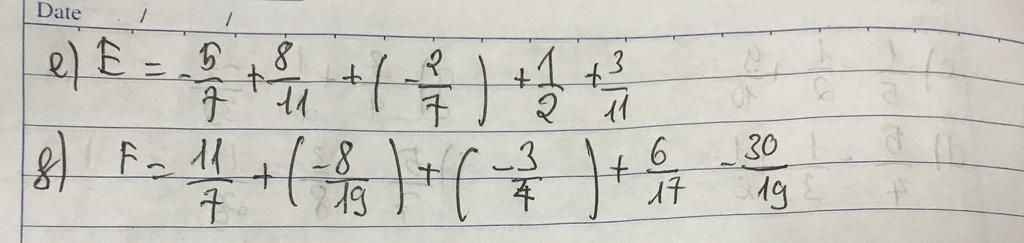 Date / /
e) E = -5/7 + 8/11 + (-2/7) + 1/2 + 3/11
g) F = 11/7 + (-8/19) + (-3/4) + 6/17 - 30/19